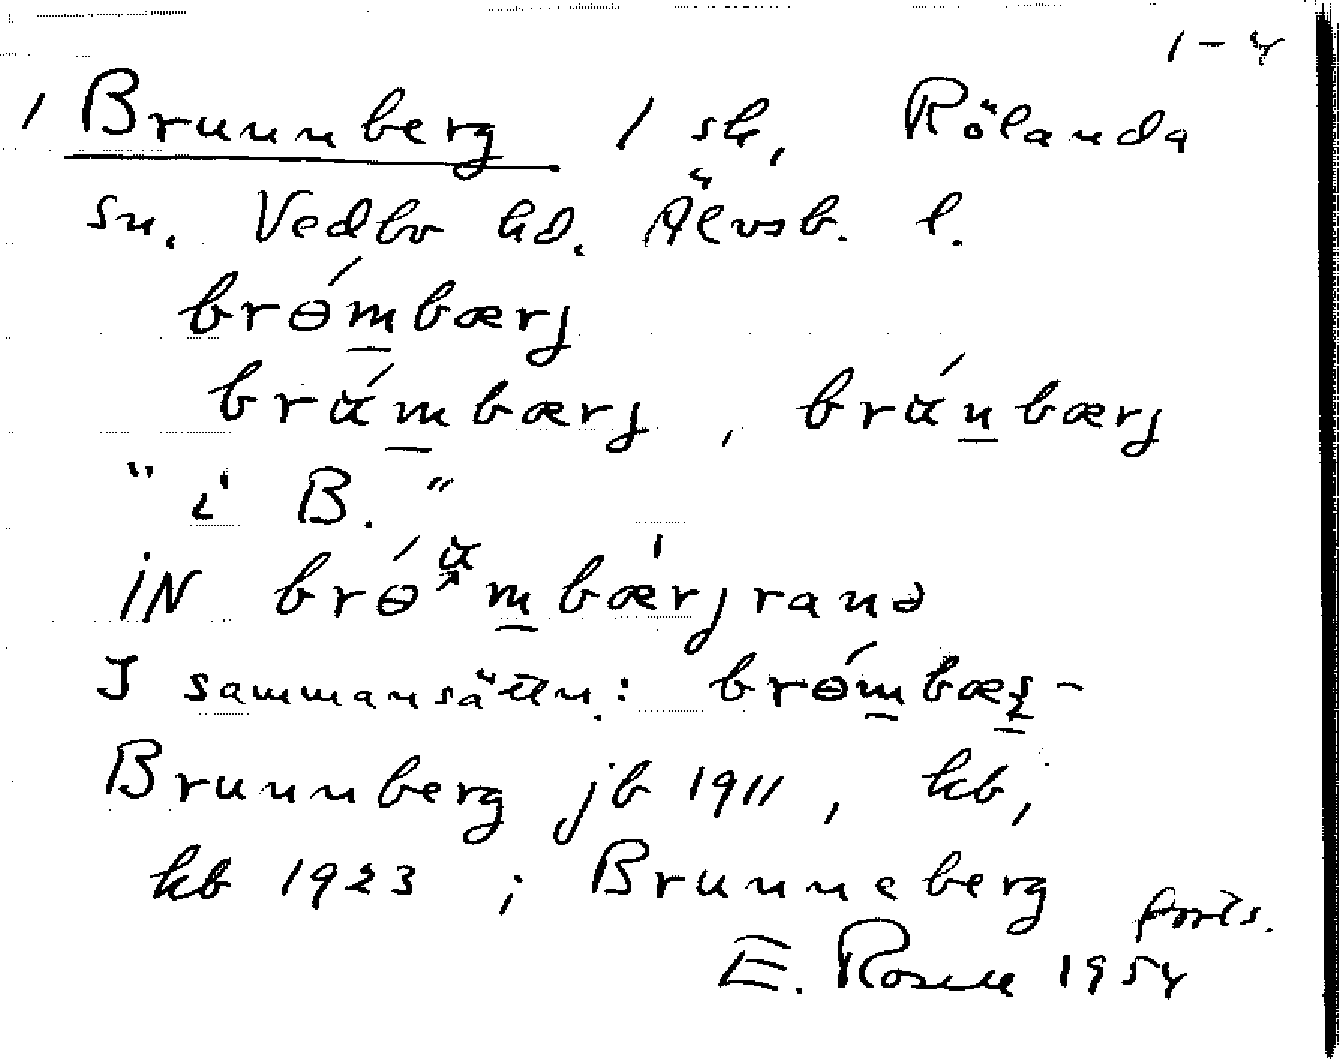 1-4
1 Brunnberg 1 sk, Rölanda
sn. Vedbo hd. Älvsb. l.
brɵ́m̲bærj
brᾰ́m̲bærj, brᾰ́n̲bærj
"i B."
iN brɵ́ m̲bærjrana
I sammansättn.: brɵ́m̲bæ -
Brunnberg jb 1911, kb,
kb 1923; Brunneberg
forts.
E. Rosell 1954